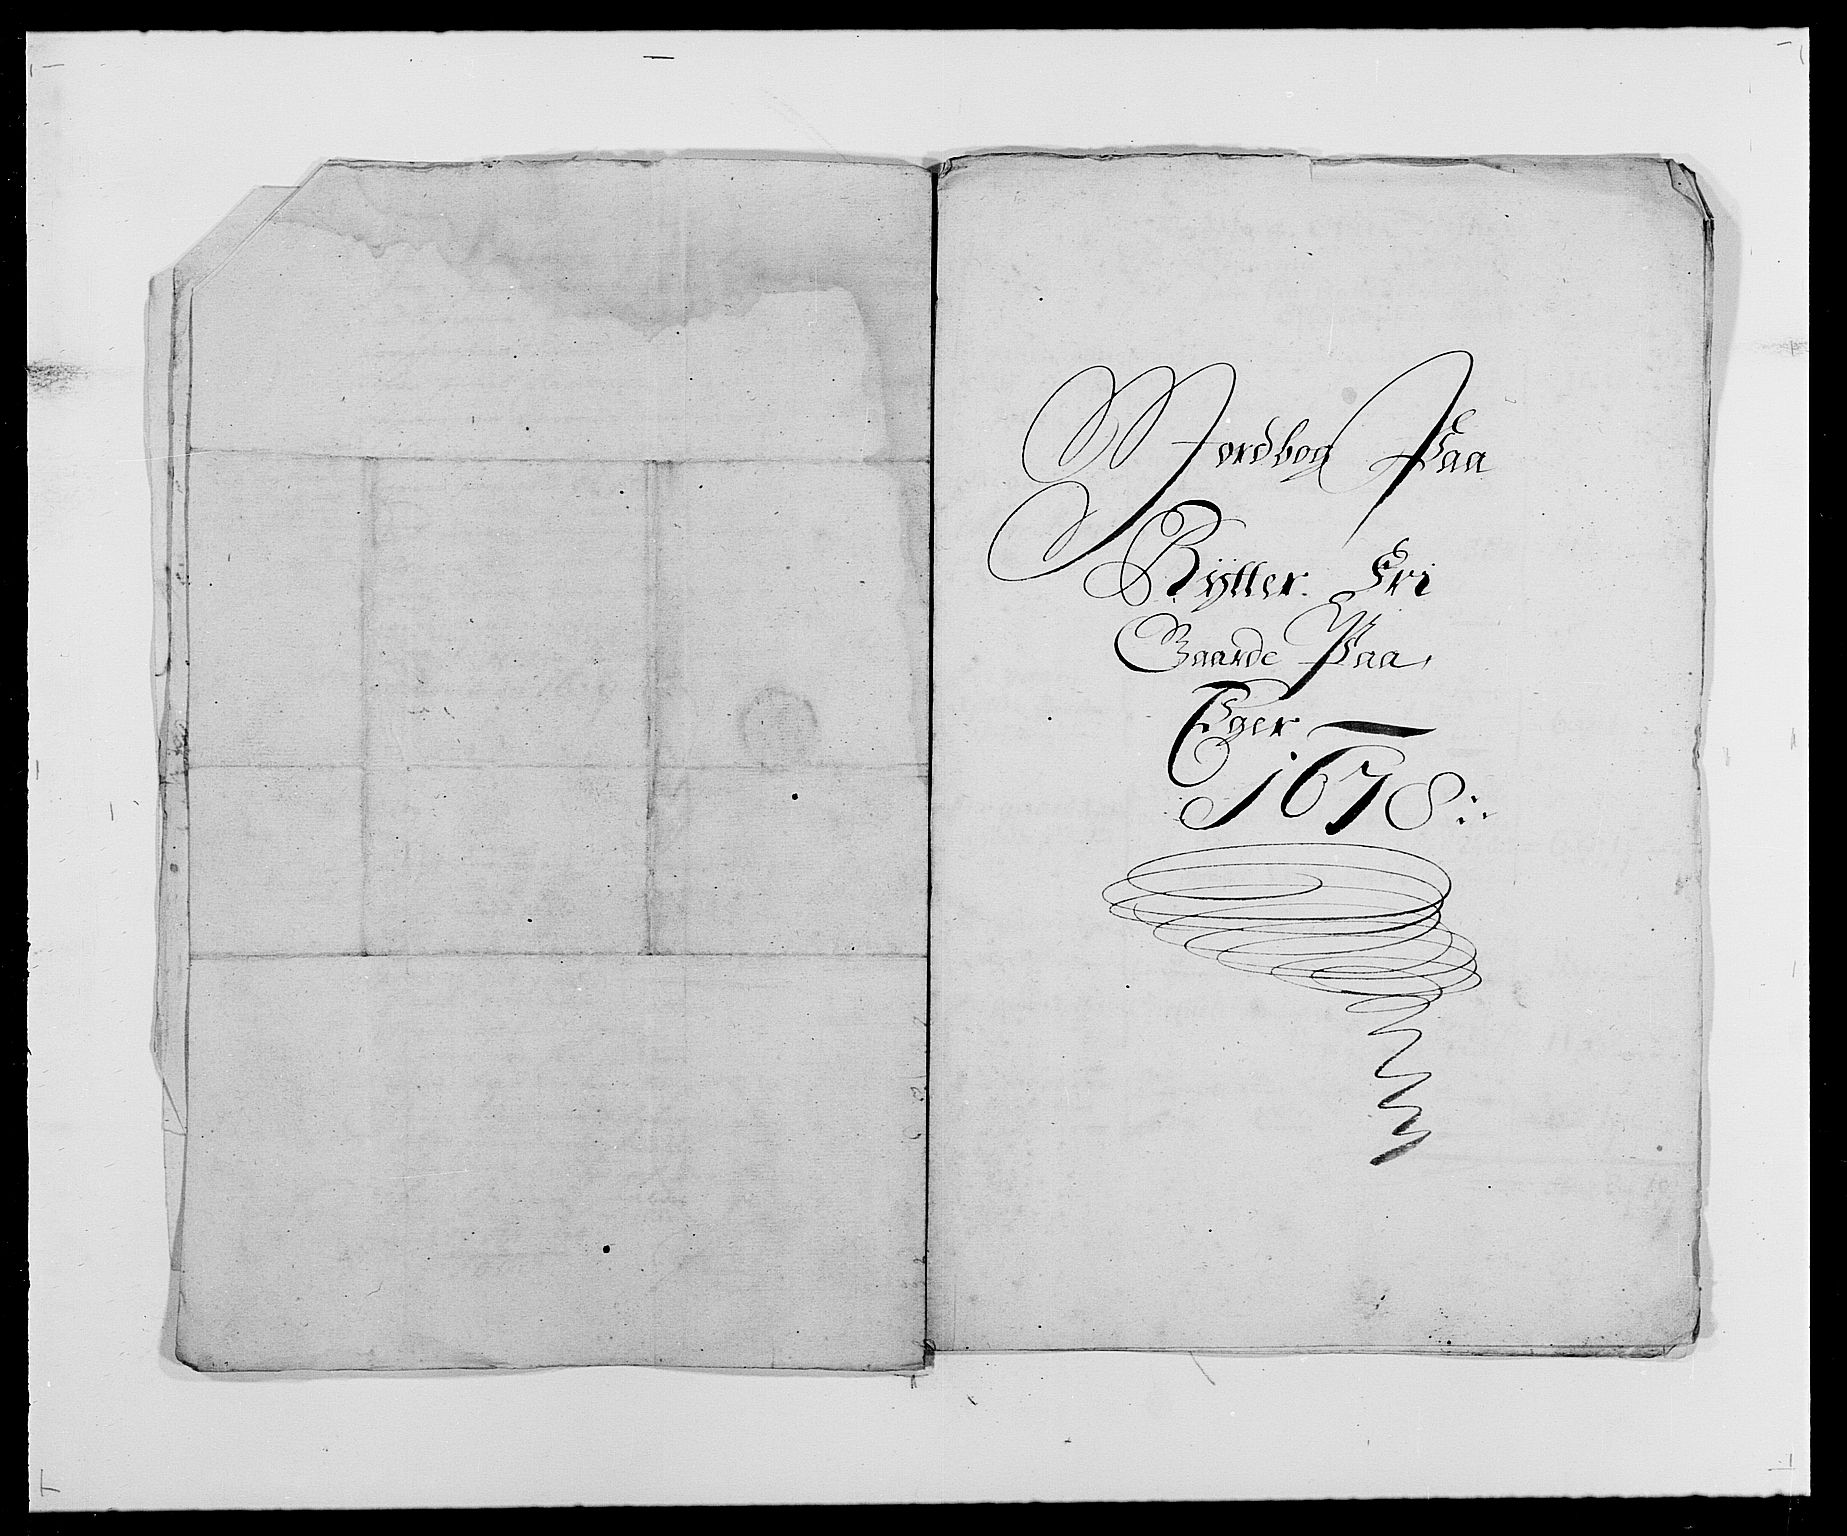 Jordbog Paa
Rytter Fri
Gaarde Paa
Eger
1678